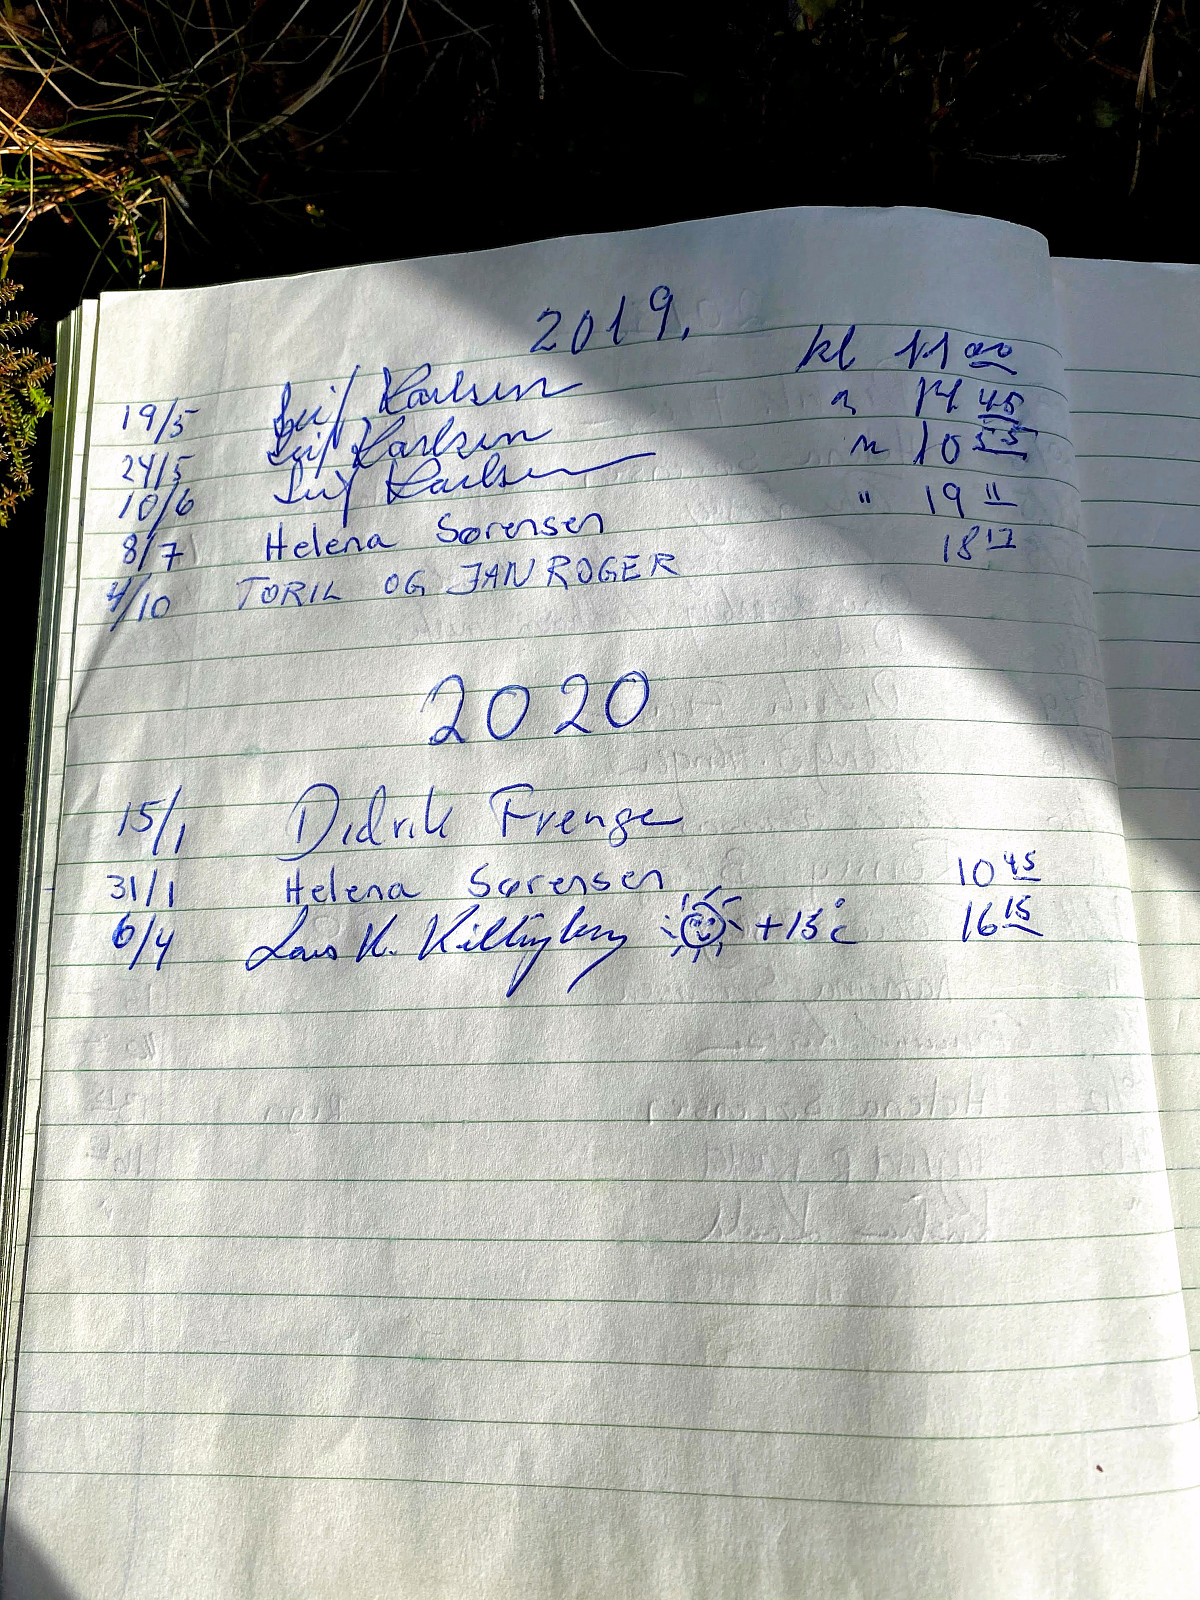 2019.
19/5 Leif Karlsen kl 11 00
24/5 Leif Karlsen " 14 45
10/6 Leif Karlsen " 10 55
8/7 Helena Sørensen " 19 11
/10 TORIL OG JAN ROGER 18 17
2020
15/1 Didrik Frenge
31/1 Helena Sørensen 10 45
6/4 Lars K. Killingberg +13°C 16 15